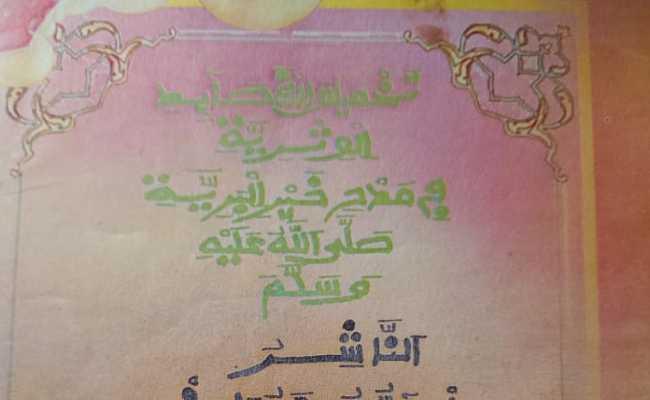 القصآيد
الوتْرِيَّة
في مَدْحِ خَيْرِ الْبَرِيَّة
صَلَّى اللَّه عَلَيْهِ
وَسَلَّمَ
النَّاشِر